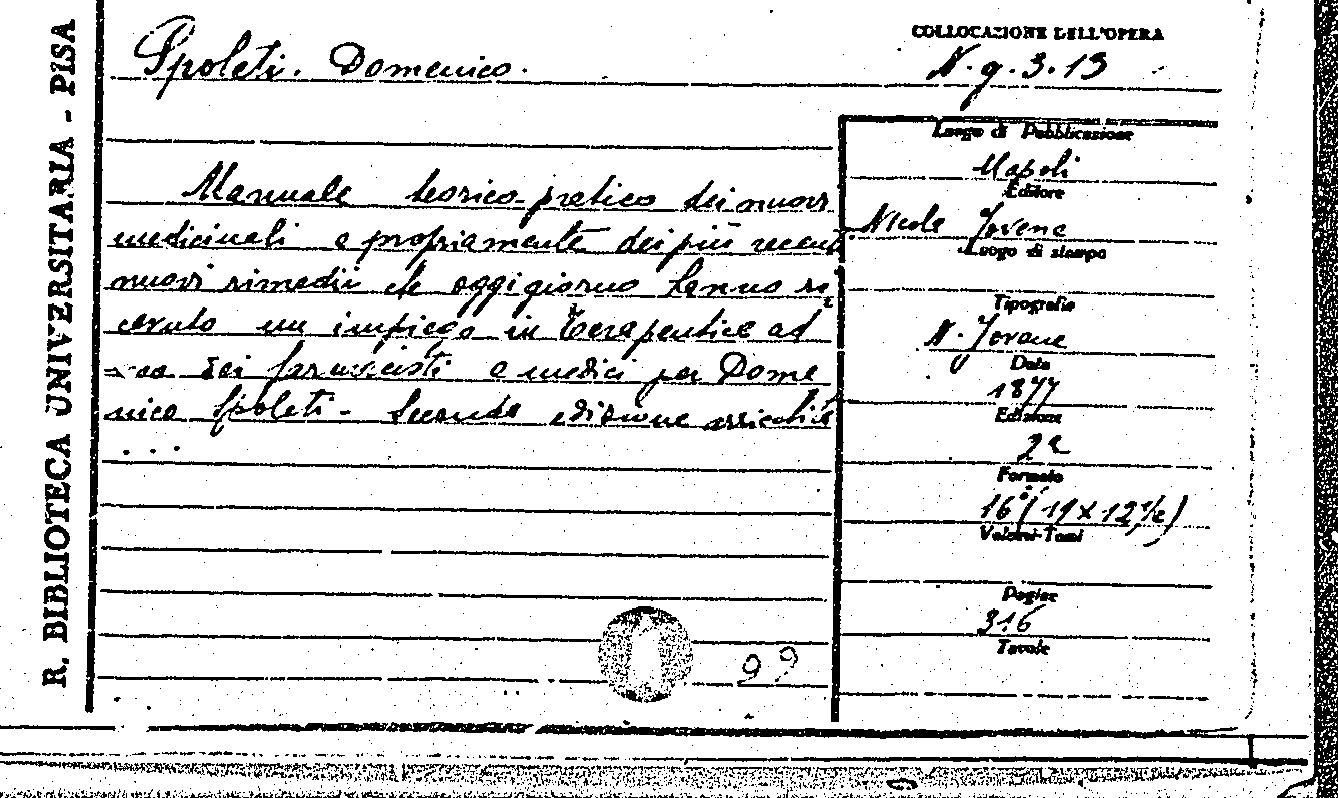 R. BIBLIOTECA UNIVERSITARIA - PISA
Spoleti. Domenico.
COLLOCAZIONE DELL'OPERA
N. g. 3. 13
Manuale teorico-pratico dei nuovi
medicinali e propriamente dei più recenti
nuovi rimedii che oggigiorno hanno ri
cevuto un impiego in Terapeutica ad
uso dei farmacisti e medici per Dome
nico Spoleti - Seconda edizione
. . .
99
Luogo di Pubblicazione
Napoli
Editore
Nicola Jovene
Luogo di stampa
Tipografia
N. Jovene
Data
1877
Edizione
2ª
Formato
16° (19 x 12,1/2)
Volumi-Tomi
Pagine
316
Tavole